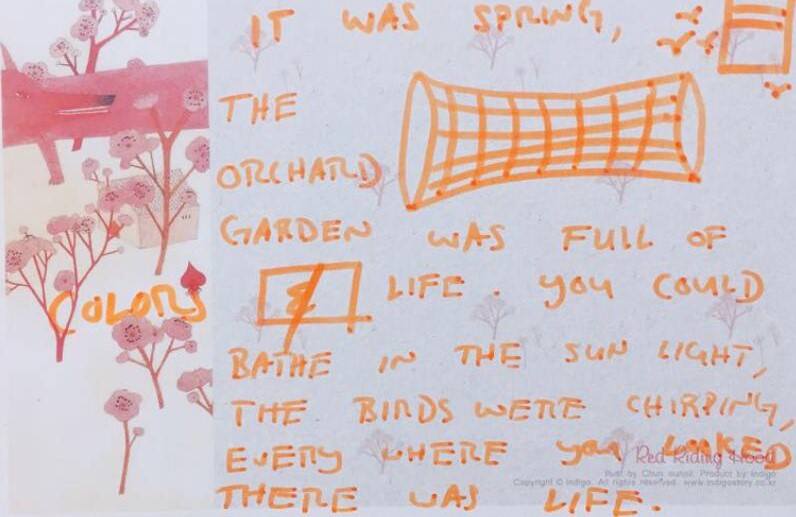 IT WAS SPRING,
THE
ORCHARD
GARDEN WAS FULL OF
COLORS & LIFE. YOU COULD
BATHE IN THE SUN LIGHT,
THE BIRDS WERE CHIRPING,
EVERY WHERE YOU LOOKED
Red Riding Hood
Illust by Chun, eunsil. Product by Indigo
Copyright © Indigo. All rights reserved. www.indigostory.co.kr
THERE WAS LIFE.